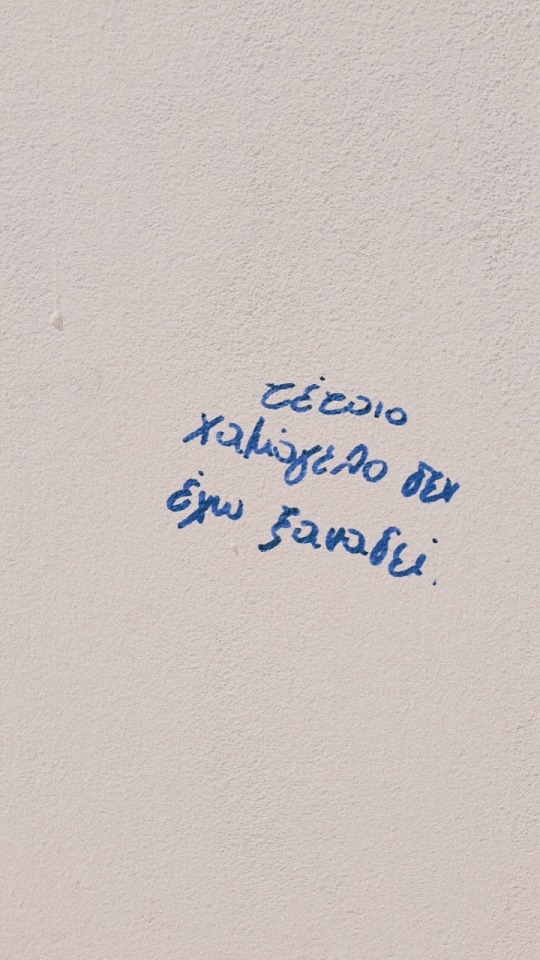 τέτοιο
χαμόγελο δεν
έχω ξαναδεί.